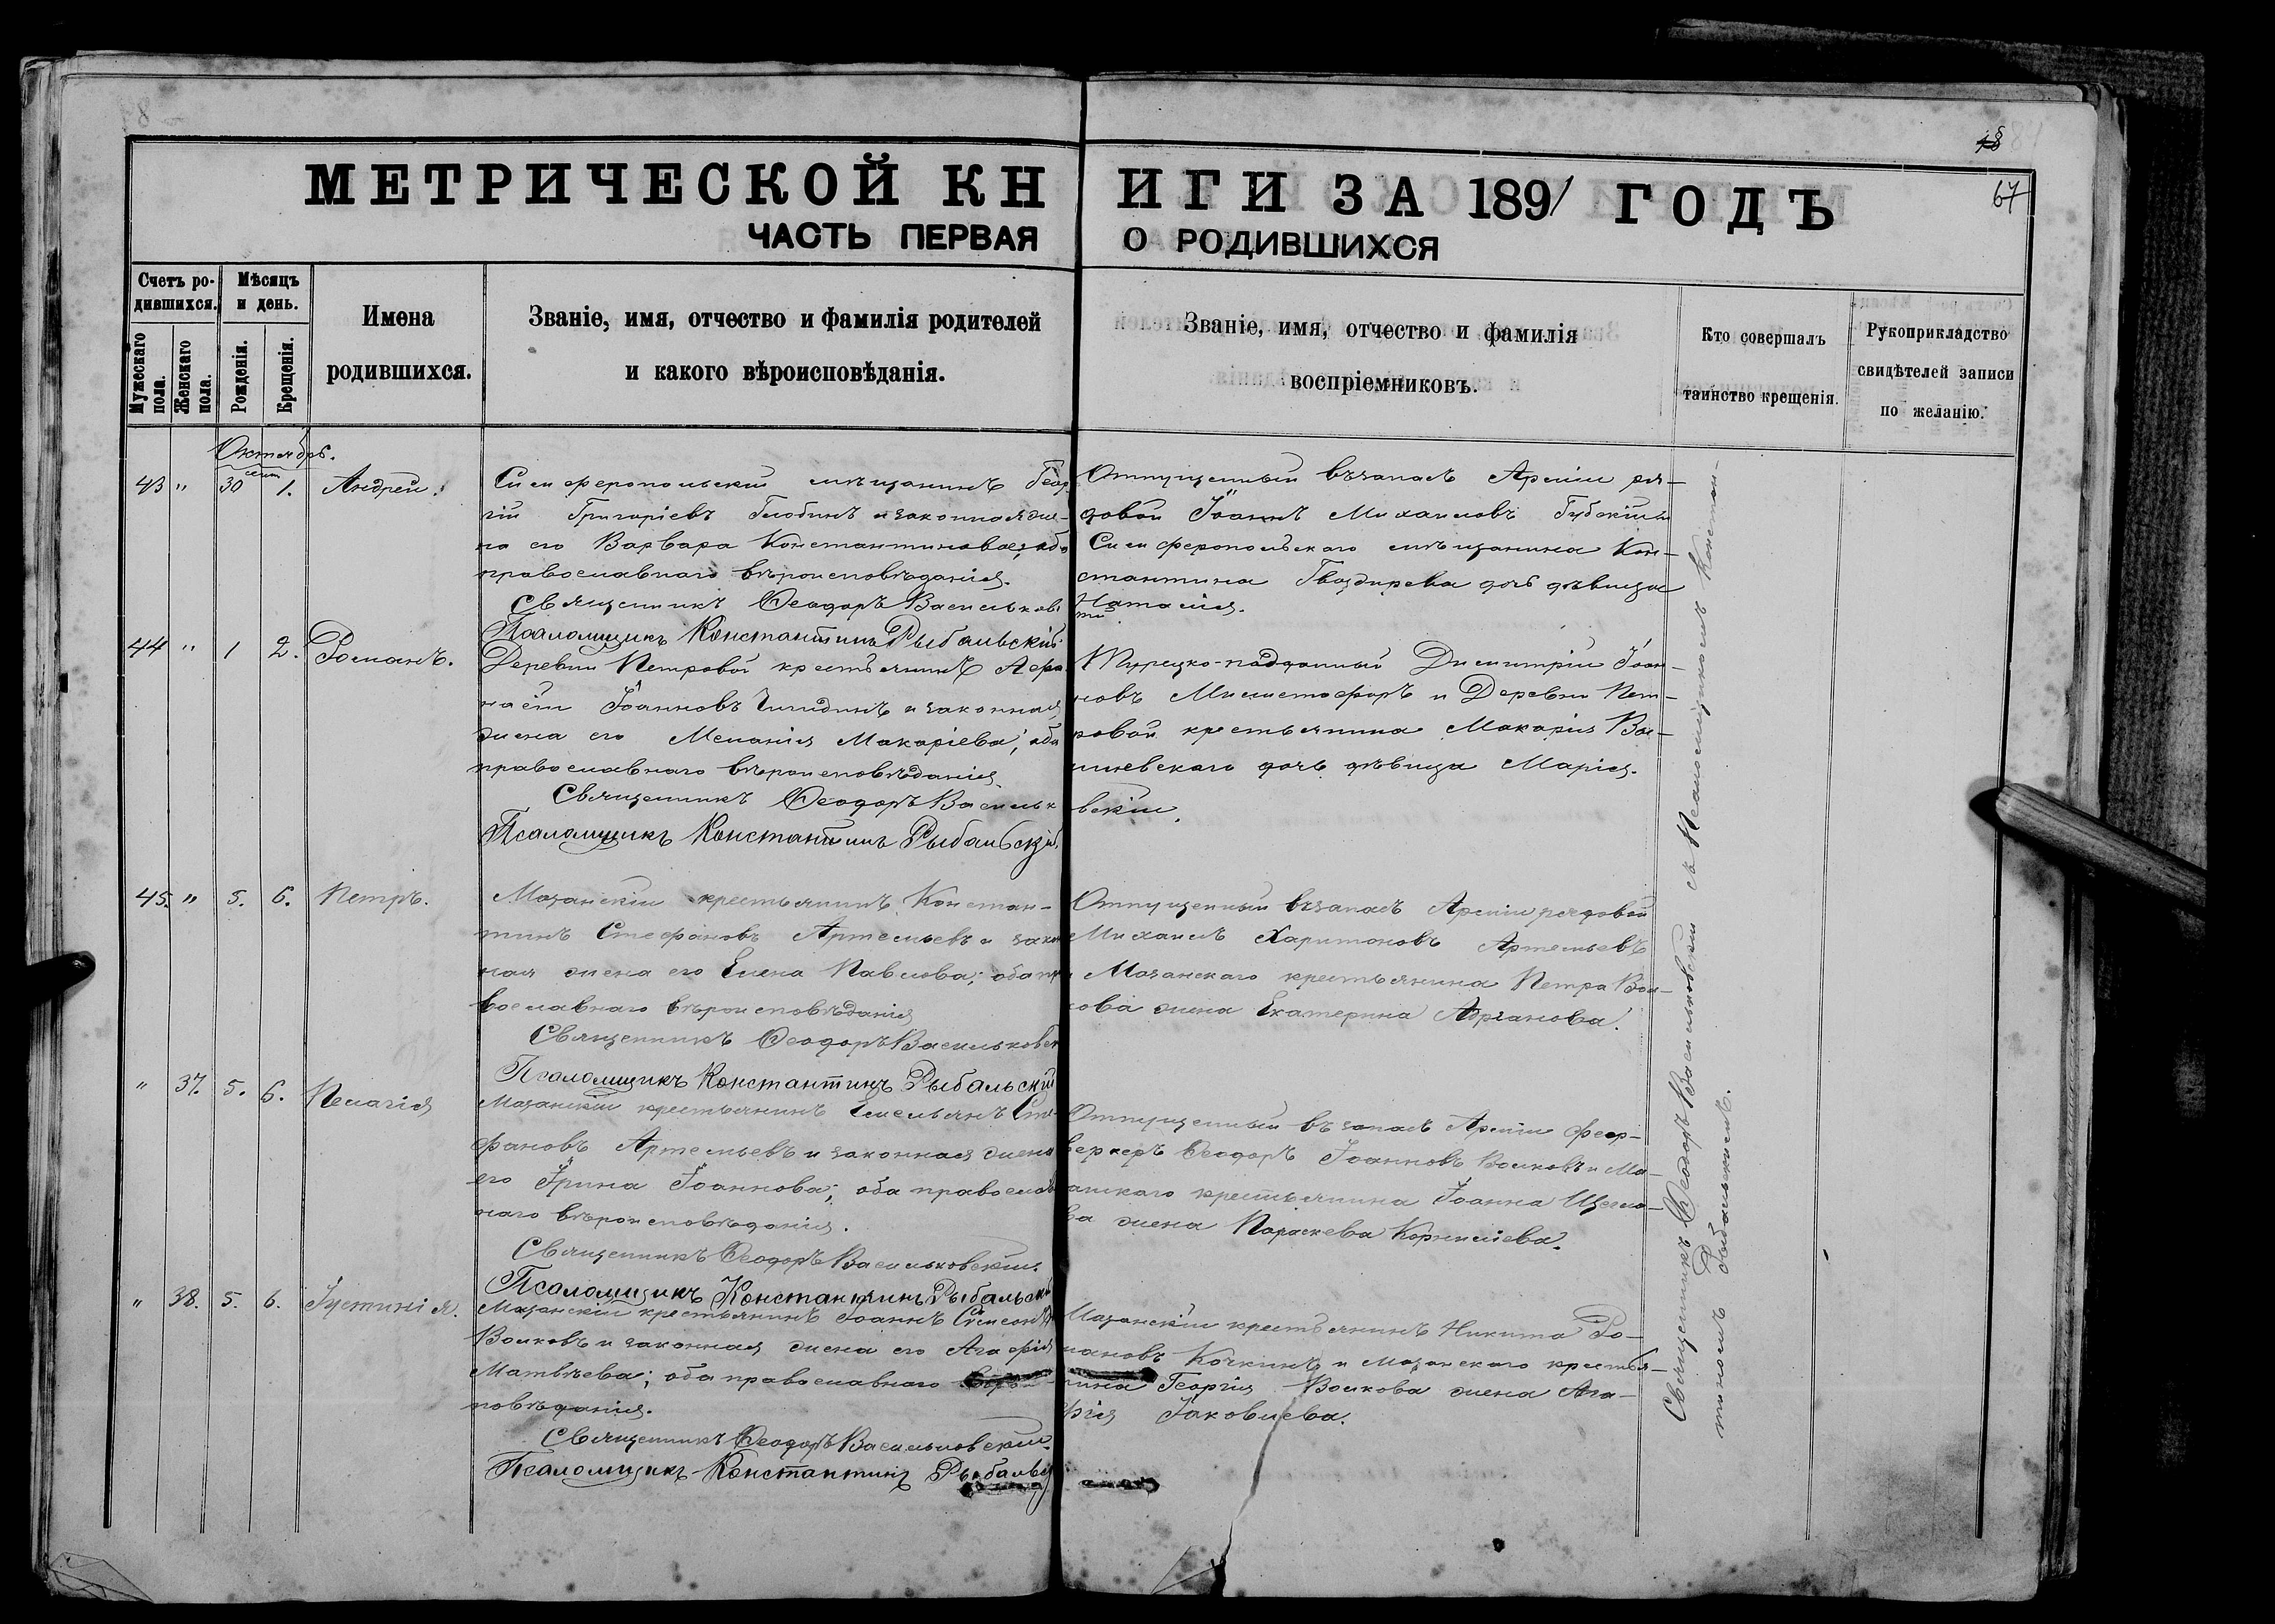 МЕТРИЧЕСКОЙ КНИГИ ЗА 1891 ГОДЪ
67
ЧАСТЬ ПЕРВАЯ О РОДИВШИХСЯ
Счетъ ро-
дившихся.
Мужескаго пола.
Женскаго пола.
Мѣсяцъ
и день.
Рожденія.
Крещенія.
Имена
родившихся.
Званіе, имя, отчество и фамилія родителей
и какого вѣроисповѣданія.
Званіе, имя, отчество и фамилія
воспріемниковъ.
Кто совершалъ
таинство крещенія.
Рукоприкладство
свидѣтелей записи
по желанію.
Октябрь.
сент
43 " 30 1. Андрей.
Симферопольскій мѣщанинъ Геор
гій Григоріевъ Глобинъ и законная же-
на его Варвара Константинова; оба
православнаго вѣроисповѣданія.
Священникъ Ѳеодоръ Васильков
Псаломщикъ Константинъ Рыбальскій
Отпущенный въ запасъ Арміи ря-
довой Іоаннъ Михаиловъ
Симферопольскаго мѣщанина Кон-
стантина дочь дѣвица
Наталія.
44 " 1 2. Романъ.
Деревни Петровой крестьянинъ Афа
насій Іоанновъ и законная
жена его Меланія Макаріева; оба
православнаго вѣроисповѣданія
Священникъ Ѳеодоръ Васильк
вскій.
Псаломщикъ Константинъ Рыбальскій
Турецко-подданный Димитрій Іоан-
новъ и Деревни Пет-
ровой крестьянина Макарія Ва-
шневскаго дочь дѣвица Марія.
45. " 5. 6. Петръ.
Мазанскій крестьянинъ Констан-
тинъ Стефановъ Артемьевъ и закон
ная жена его Елена Павлова; оба пр
вославнаго вѣроисповѣданія
Священникъ Ѳеодоръ Васильковск
Псаломщикъ Константинъ Рыбальскій
Отпущенный въ запасъ Арміи рядовой
Михаилъ Харитоновъ Артемьевъ
и Мазанскаго крестьянина Петра Вол-
кова жена Екатерина Адріанова.
" 37. 5. 6. Пелагія
Мазанскій крестьянинъ Емельянъ Сте-
фановъ Артемьевъ и законная жена
его Ірина Іоаннова; оба православ
наго вѣроисповѣданія.
Священникъ Ѳеодоръ Васильковскій.
Псаломщикъ Константинъ Рыбальскі
Отпущенный въ запасъ Арміи феер-
веркеръ Ѳеодоръ Іоанновъ Волковъ и Ма-
занскаго крестьянина Іоанна Щегло-
ва жена Параскева Корниліева.
" 38. 5. 6. Іустинія.
Мазанскій крестьянинъ Іоаннъ Симеоновъ
Волковъ и законная жена его Агафія
Матвѣева; оба православнаго вѣрои-
повѣданія.
Священникъ Ѳеодоръ Васильковскій.
Псаломщикъ Константинъ Рыбальск
Мазанскій крестьянинъ Никита Ро-
мановъ Кочкинъ и Мазанскаго кресть-
янина Георгія Волкова жена Ага-
фія Іаковлева.
Священникъ Ѳеодоръ Васильковскій съ Псаломщикомъ Констан-
тиномъ Рыбальскимъ.